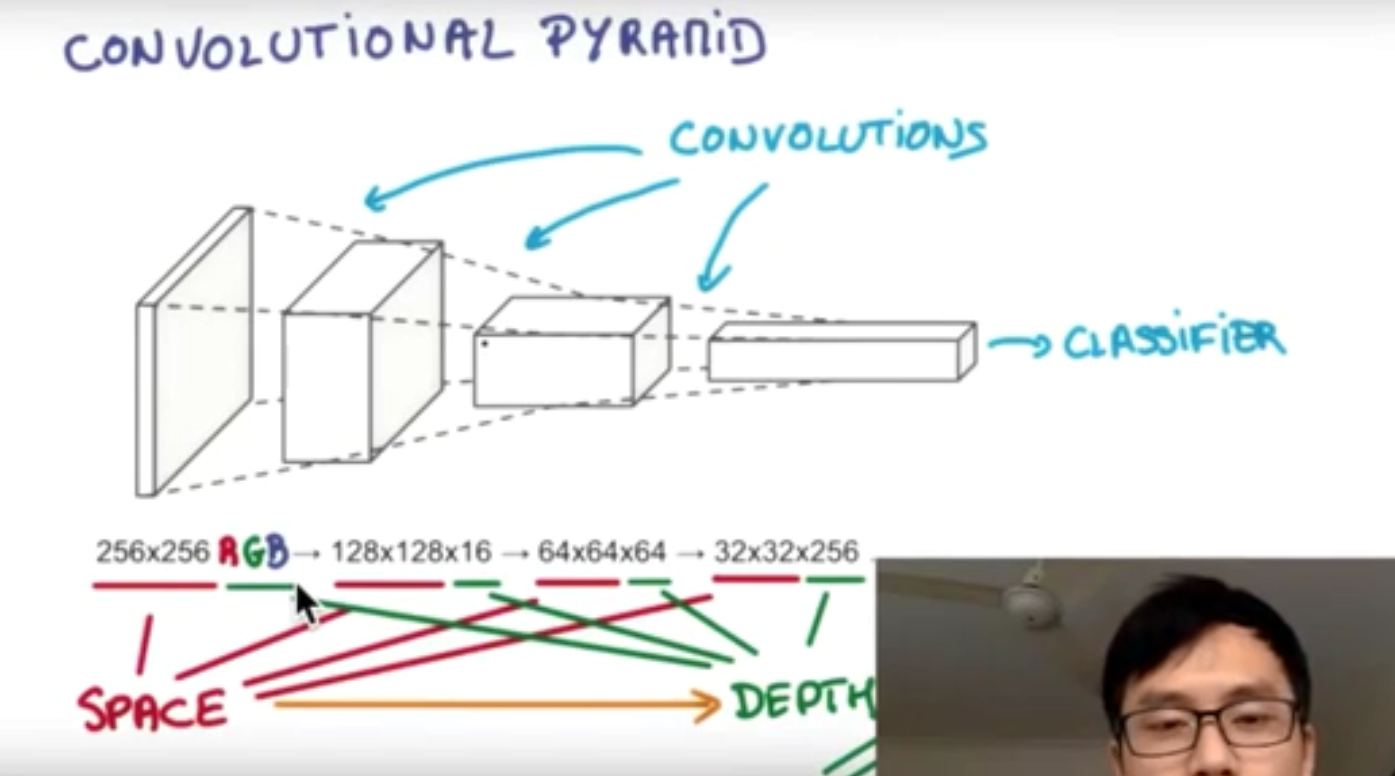 CONVOLUTIONAL PYRAMID
CONVOLUTIONS
CLASSIFIER
256x256 RGB → 128x128x16 → 64x64x64 → 32x32x256
SPACE → DEPTH